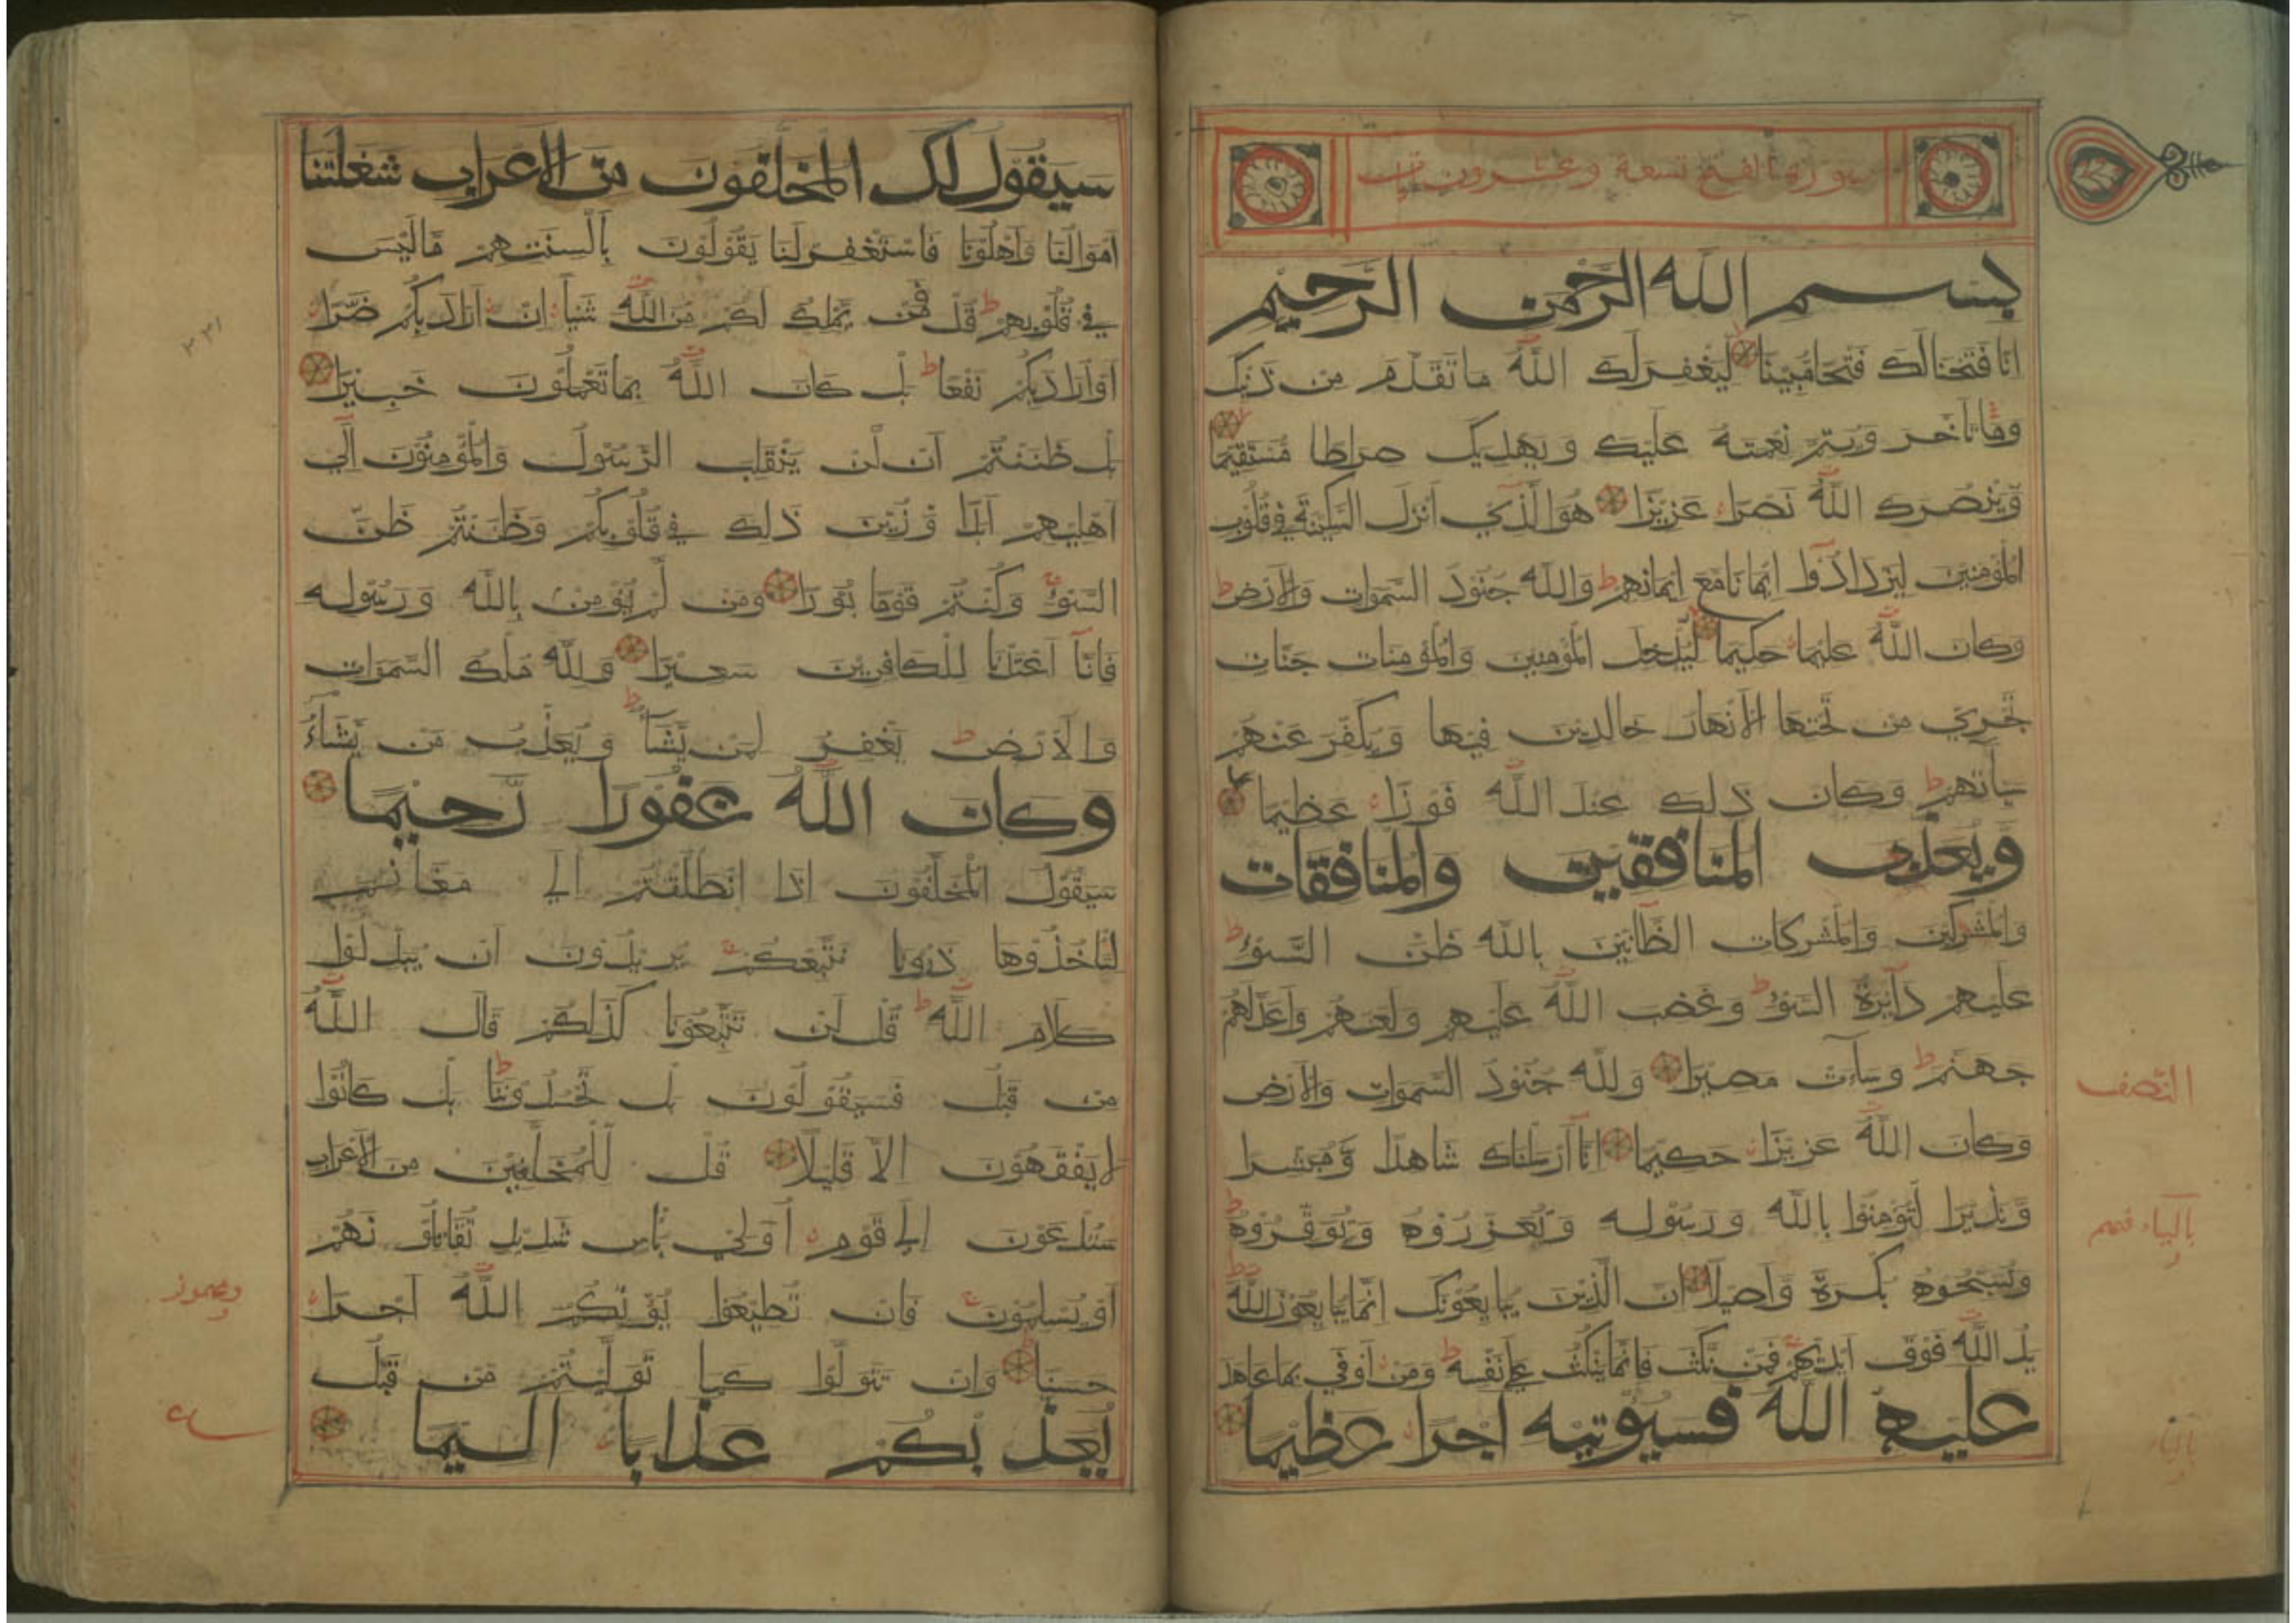 سورة الفتح تسعة وعشرون
بسم الله الرحمن الرحيم
انا فتحنالك فتحا مبينا ليغفر لك الله ما تقدم من ذنبك
وما تاخر ويتم نعمته عليك ويهديك صراطا مستقيما
وينصرك الله نصرا عزيزا هو الذي انزل السكينة في قلوب
المؤمنين ليزدادوا ايمانا مع ايمانهم ولله جنود السموات والارض
وكان الله عليما حكيما ليدخل المؤمنين والمؤمنات جنات
تجري من تحتها الانهار خالدين فيها ويكفر عنهم
سيأتهم وكان ذلك عند الله فوزا عظيما
ويعذب المنافقين والمنافقات
والمشركين والمشركات الظانين بالله ظن السوء
عليهم دآئرة السوء وغضب الله عليهم ولعنهم واعدلهم
جهنم وسآءت مصيرا ولله جنود السموات والارض
وكان الله عزيزا حكيما انا ارسلناك شاهدا ومبشرا
ونذيرا لتؤمنوا بالله ورسوله وتعزروه وتوقروه
وتسبحوه بكرة واصيلا ان الذين يبايعونك انما يبايعون الله
يد الله فوق ايديهم فمن نكث فانما ينكث على نفسه ومن اوفي بما عاهد
عليه الله فسيؤتيه اجرا عظيما
النصف
سيقول لك المخلفون من الاعراب شغلتنا
اموالنا واهلونا فاستغفر لنا يقولون بالسنتهم ماليس
في قلوبهم قل فمن يملك لكم من الله شيأ ان ارادبكم ضرا
او ارادبكم نفعا بل كان الله بما تعملون خبيرا
بل ظننتم ان لن ينقلب الرسول والمؤمنون الي
اهليهم ابدا وزين ذلك في قلوبكم وظننتم ظن
السوء وكنتم قوما بورا ومن لم يؤمن بالله ورسوله
فانا اعتدنا للكافرين سعيرا ولله ملك السموات
والارض يغفر لمن يشآء ويعذب من يشآء
وكان الله غفورا رحيما
سيقول المخلفون اذا انطلقتم الي مغانم
لتاخذوها ذرونا نتبعكم يريدون ان يبدلوا
كلام الله قل لن تتبعونا كذلكم قال الله
من قبل فسيقولون بل تحسدوننا بل كانوا
لا يفقهون الا قليلا قل للمخلفين من الاعراب
ستدعون الي قوم اولي بأس شديد تقاتلو نهم
او يسلمون فان تطيعوا يؤتكم الله اجرا
حسنا وان تتولوا كما توليتم من قبل
يعذ بكم عذابا اليما